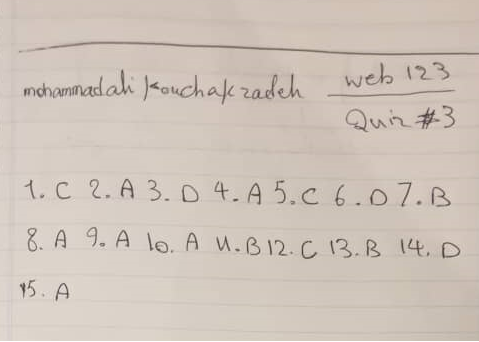 mohammadali Kouchakzadeh web 123
Quiz #3
1. C 2. A 3. D 4. A 5. C 6. D 7. B
8. A 9. A 10. A 11. B 12. C 13. B 14. D
15. A